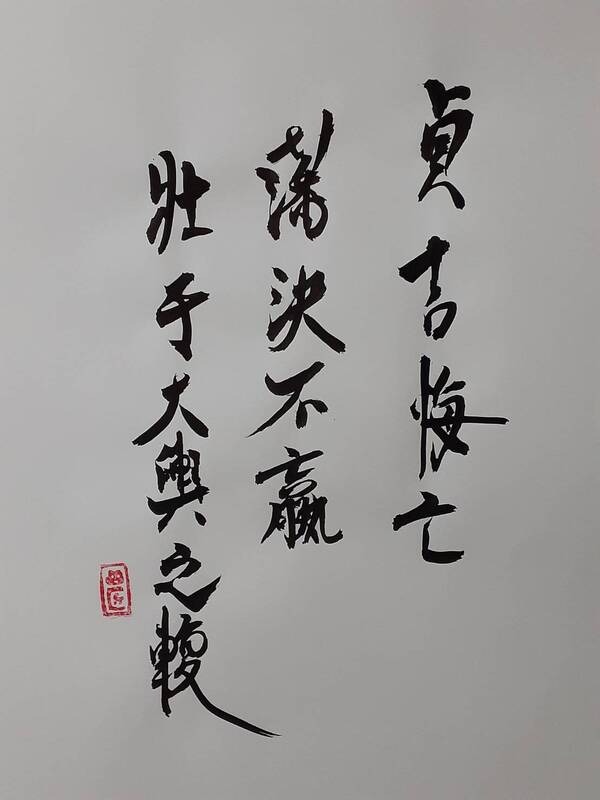 貞吉悔亡
藩決不羸
壯于大輿之輹